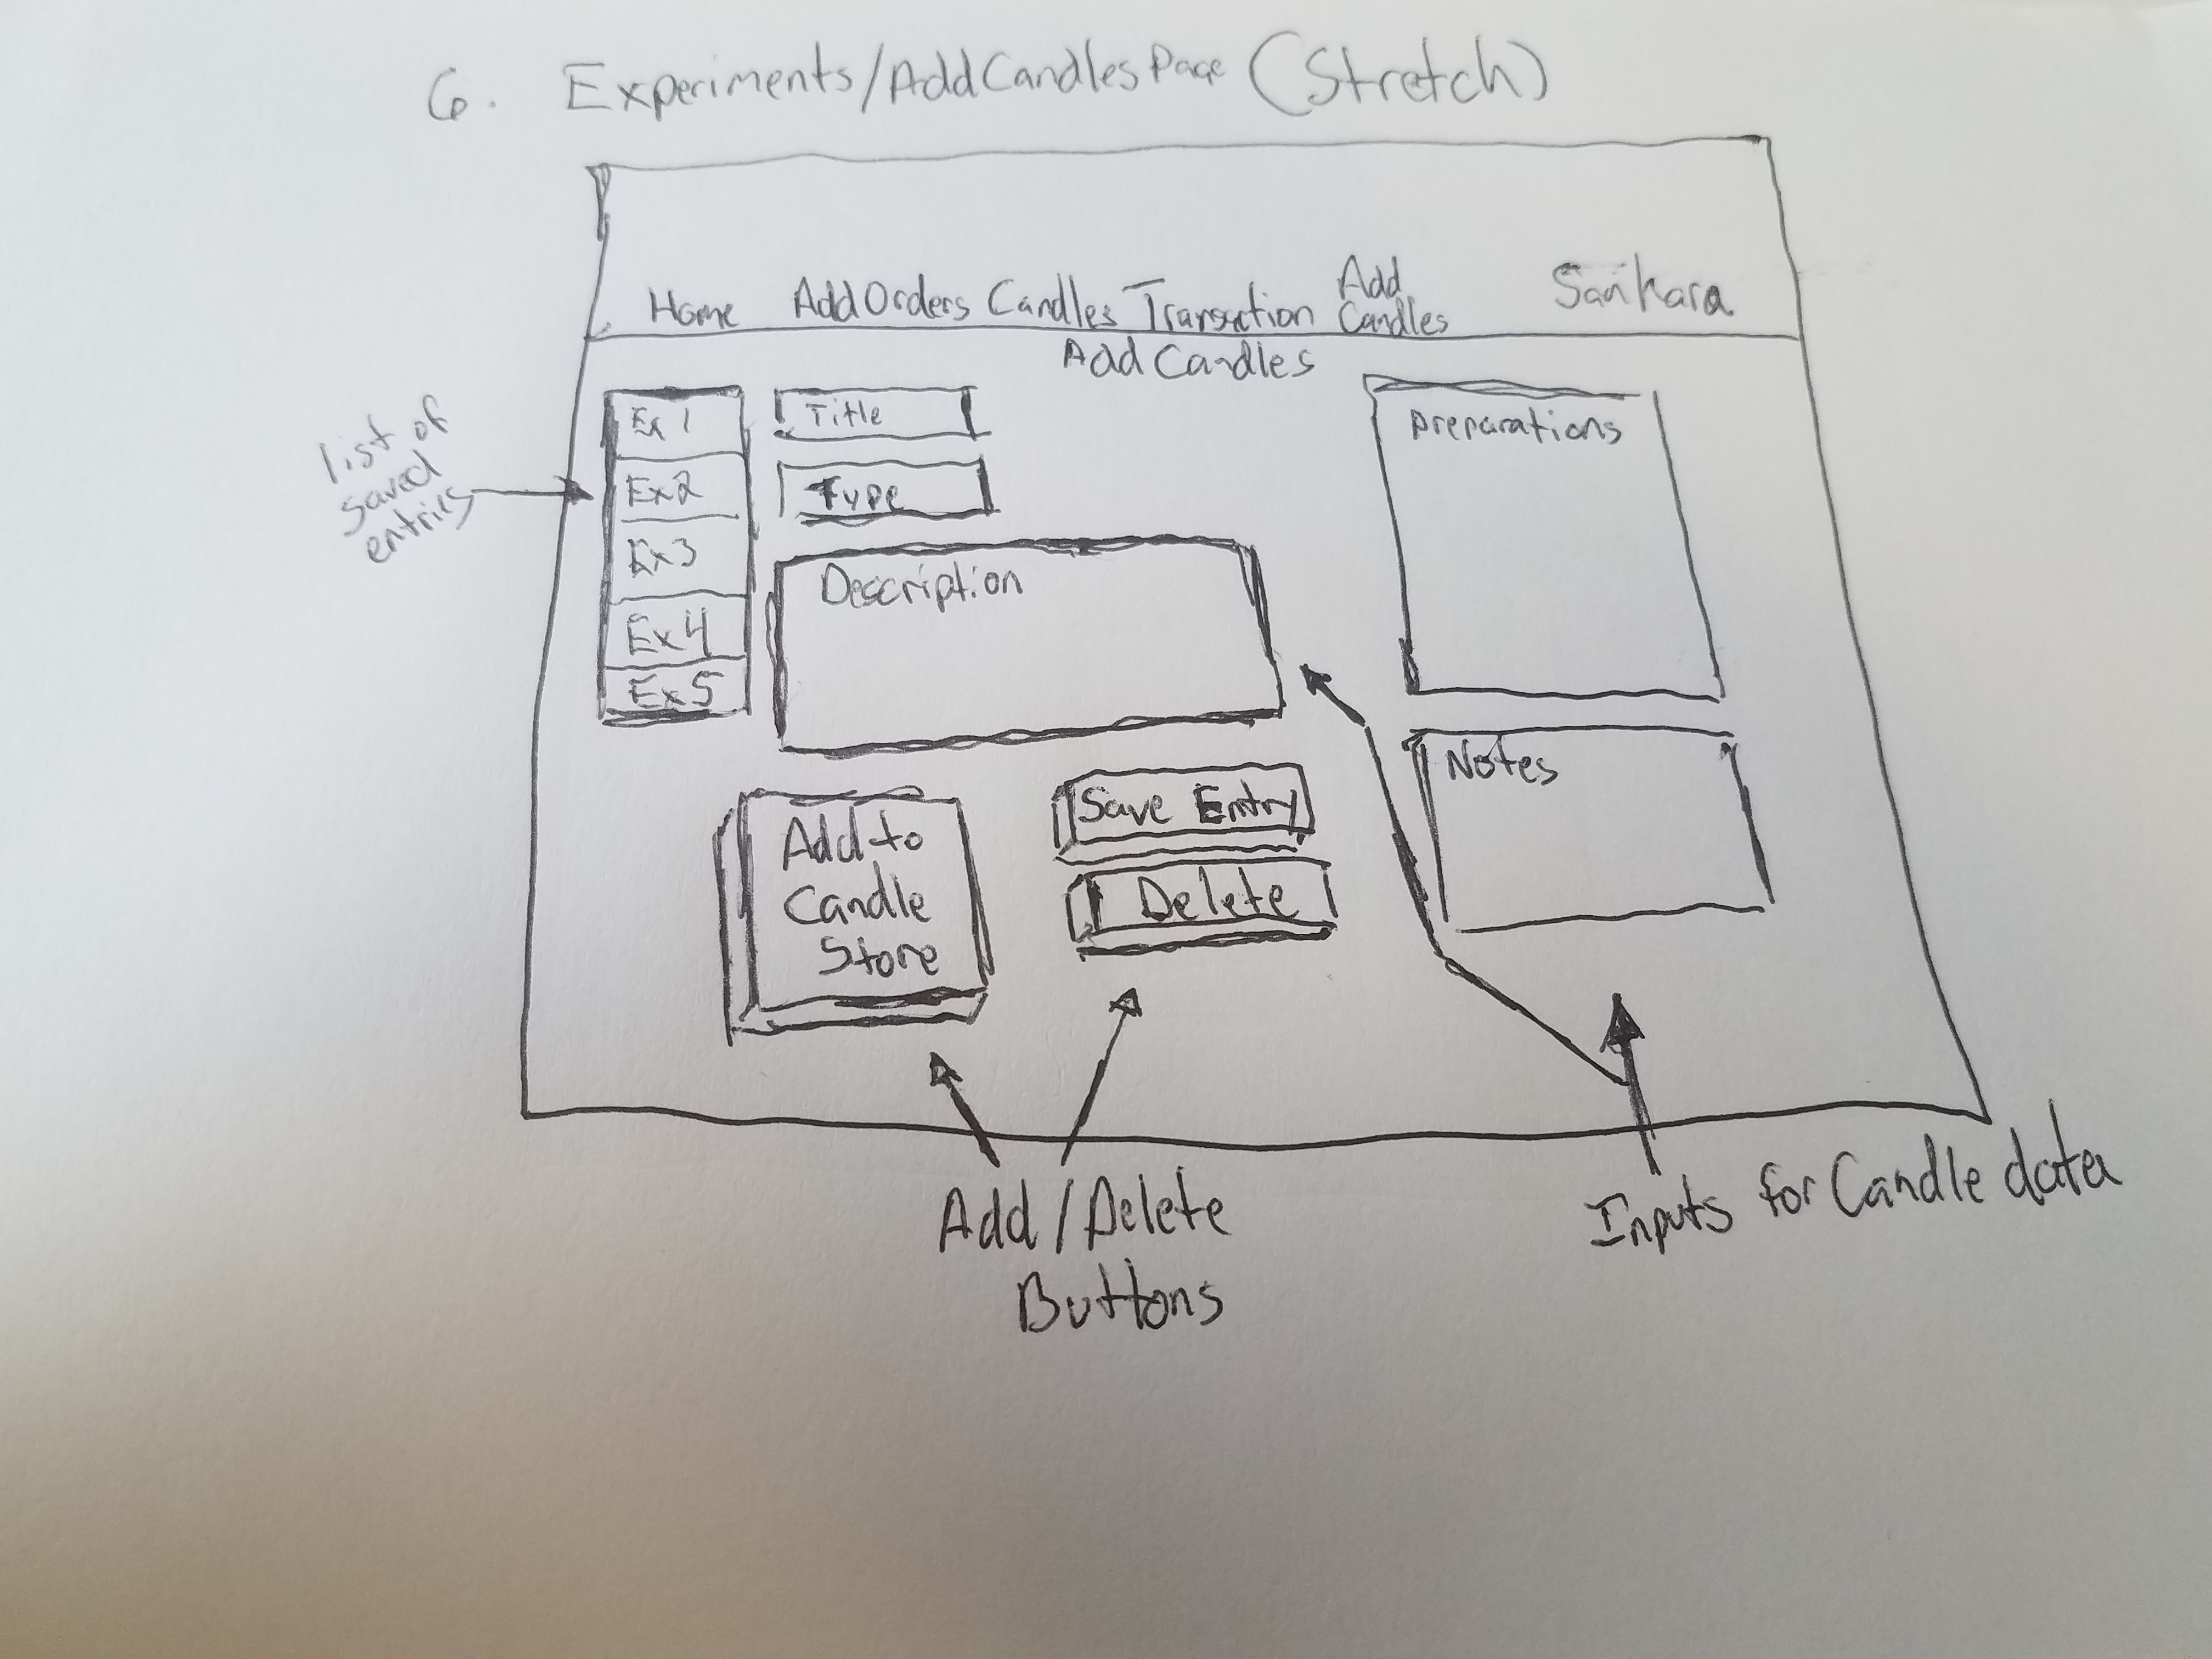 6. Experiments/Add Candles Page (Stretch)
Home Add Orders Candles Transaction Add Candles Sankara
Add Candles
list of
saved
entries
Ex 1
Ex2
Ex3
Ex4
Ex5
Title
Type
Description
Preparations
Notes
Add to
Candle
Store
Save Entry
Delete
Add/Delete
Buttons
Inputs for Candle data